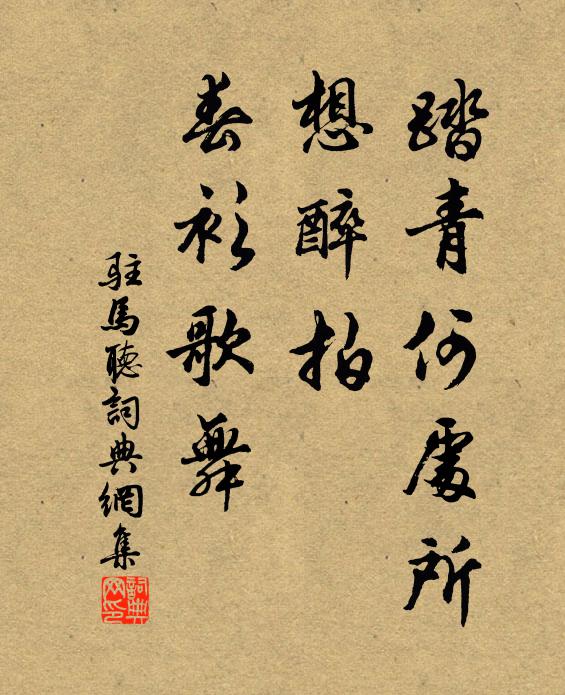 踏青何處所
想醉拍
春衫歌舞
駐馬聽詞典網集
詞典网印